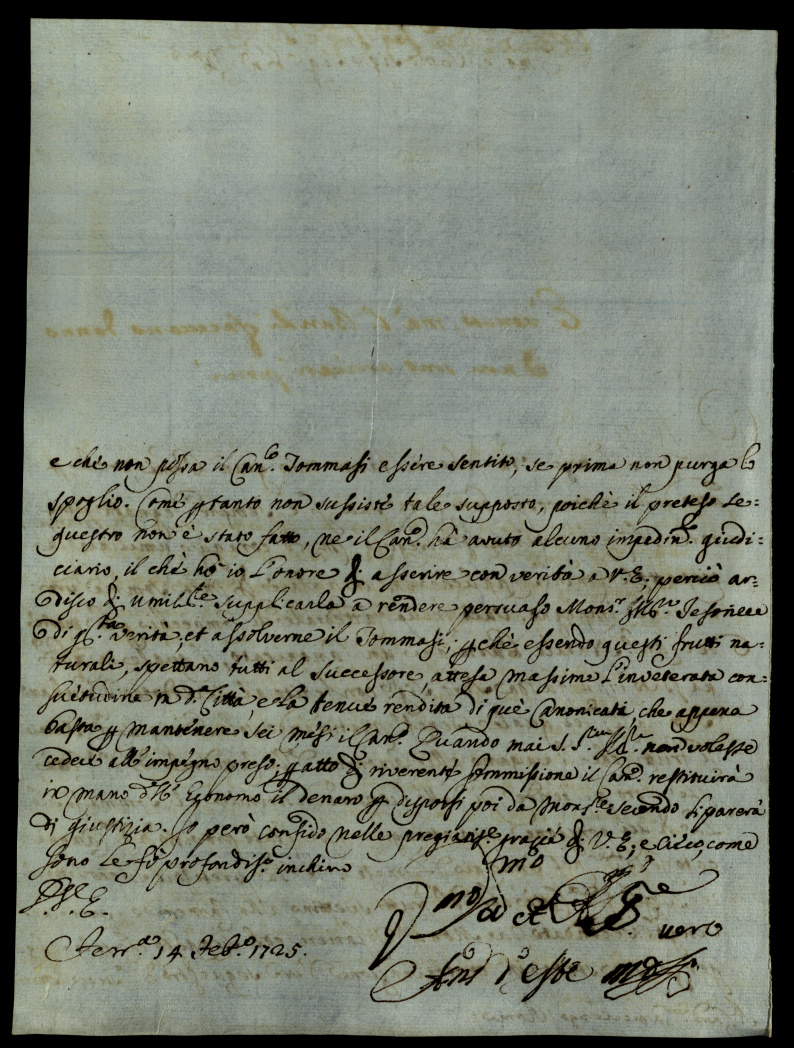 e che non possa il Can.co Tommasi essere sentito, se prima non purga lo
spoglio. Come p tanto non sussiste tale supposto, poiche il preteso se=
questro non è stato fatto, ne il Can.co hà avuto alcuno impedim.to giudi=
ciario, il che hò io l'onore di asserire con verità a V.E. perciò ar=
disco di umilm.te supplicarla a rendere persuaso Mons.r Tesoriere
di q.ta verità, et assolverne il Tommasi; p che essendo questi frutti na=
turali, spettano tutti al successore, attesa massime l'inveterata con=
suetudine in d.a Città, e la tenue rendita di que Canonicati, che appena
basta p mantenere sei mesi il Can.co Quando mai S. S.ria Ill.ma non volesse
cedere all'impegno preso, p atto di riverente sommissione il Can.co restituirà
in mano dell' Economo il denaro p disporsi poi da Mons.re secondo li parerà
di giustizia. Io però confido nelle pregiatis.e grazie di V.E; e sico come
sono le fò profondis.o inchino
D.V.E.
Ferr.a 14 Feb.o 1725.
mo
vero
Ant d'este